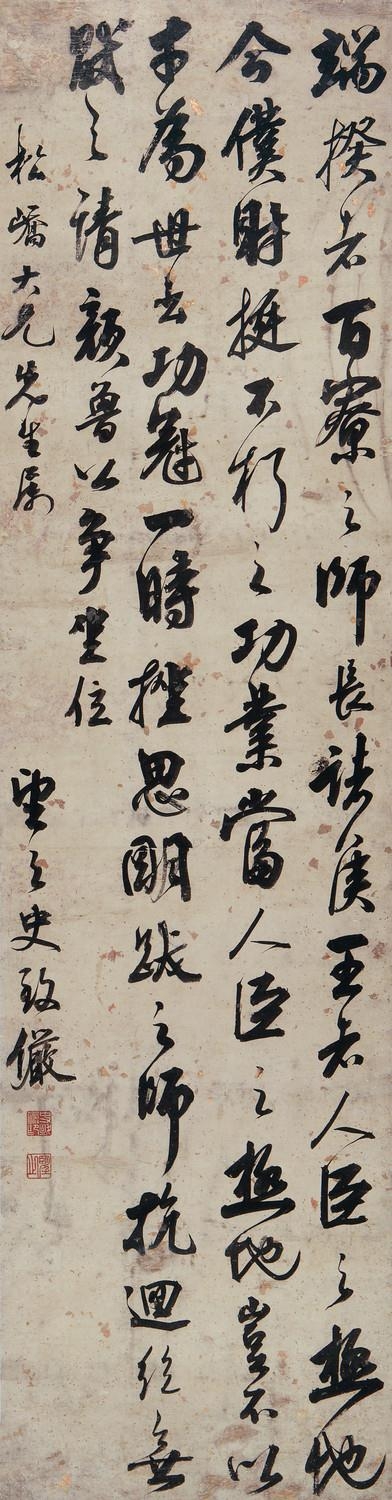 端揆者百寮之師長諸侯王者人臣之極地
今僕射挺不朽之功業當人臣之極地豈不以
才爲世出功冠一時挫思明跋扈之師抗迴紇無
猒之請顏魯公爭坐位
松嶠大兄先生属
望之史致儼